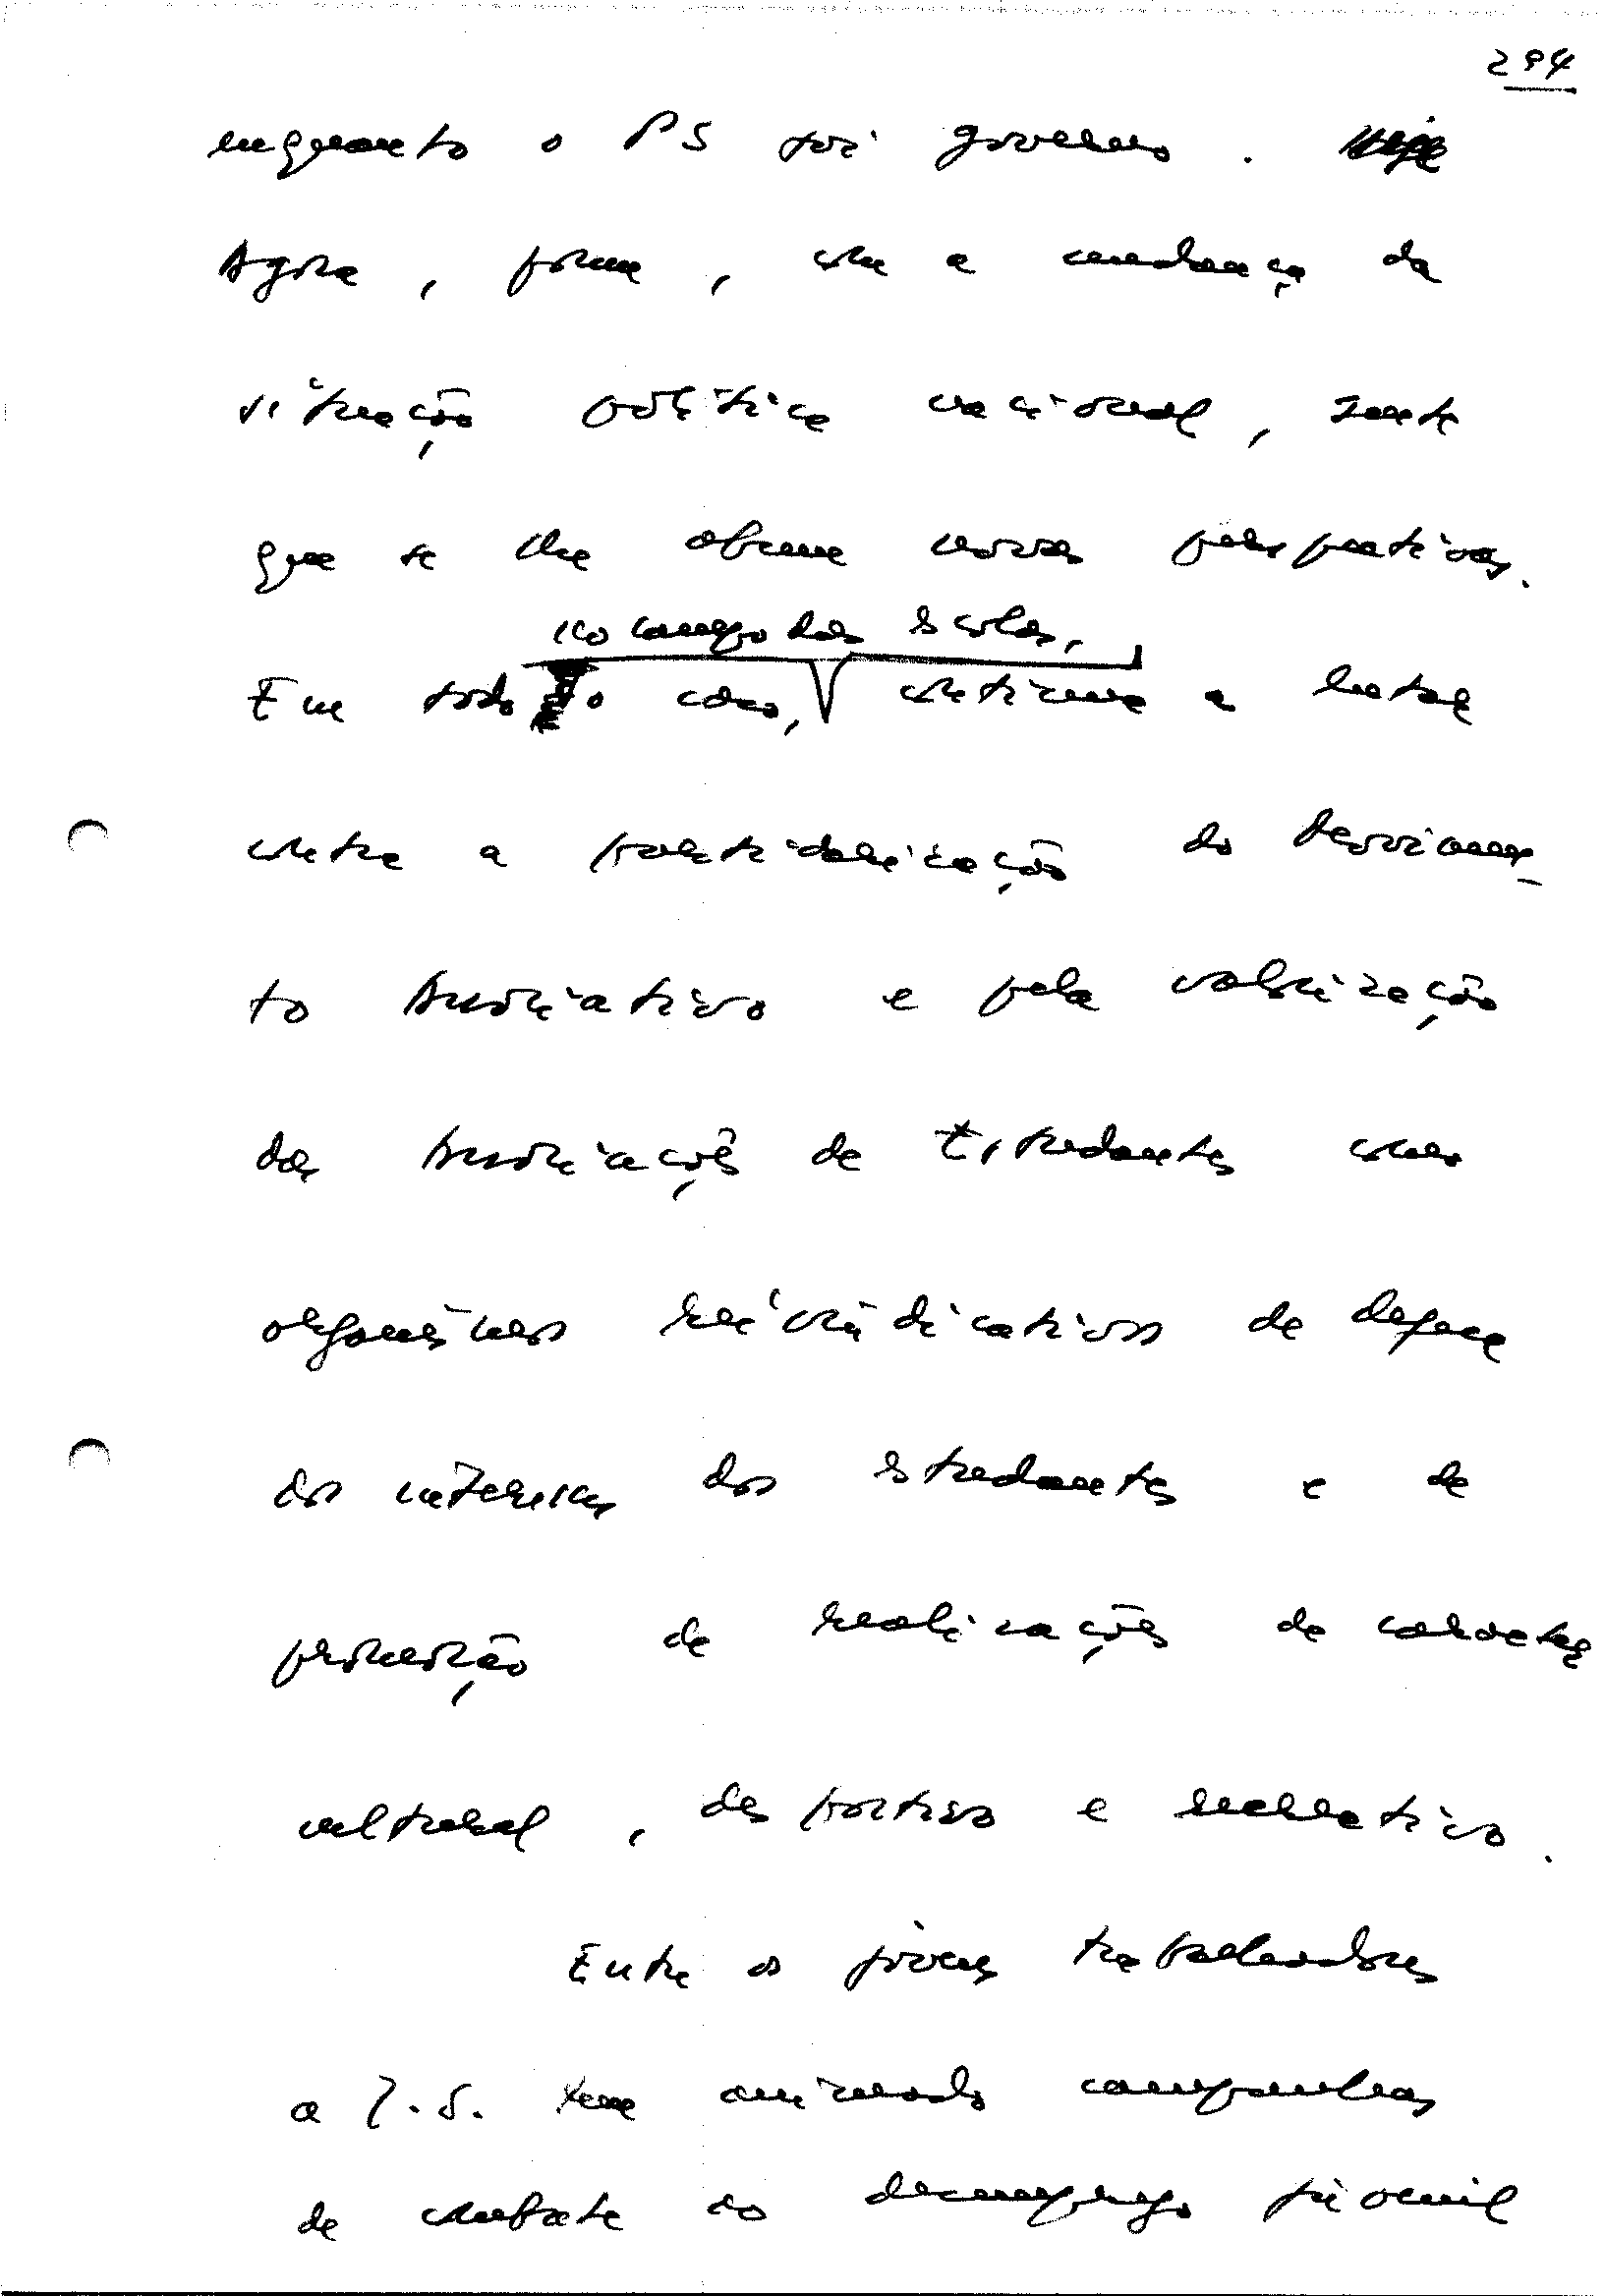 294
enquanto o PS foi governo.
Agora, porém, com a mudança da
situação política nacional, sente
que se lhe abrem novas perspectivas.
no campo das Escolas,
Em todo o caso, continua a lutar
contra a partidarização do Movimen-
to Associativo e pela valorização
das Associações de Estudantes como
organismos reivindicativos de defesa
dos interesses dos estudantes e de
promoção de realizações de carácter
cultural, desportivo e recreativo.
Entre os jovens trabalhadores
a J.S. tem animado campanhas
de combate ao desemprego juvenil